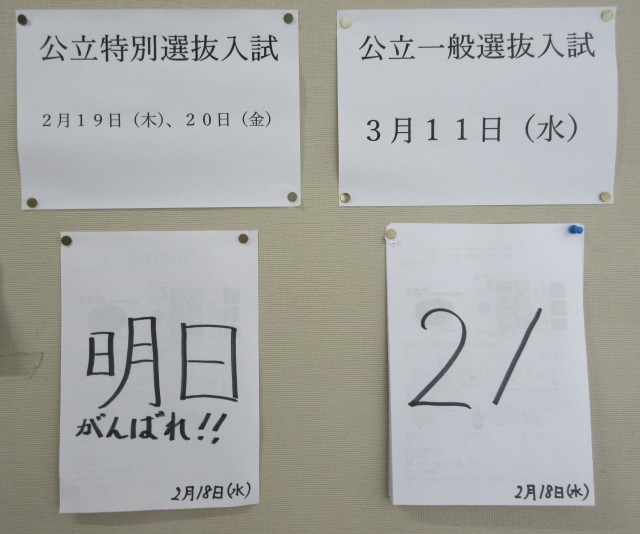 公立特別選抜入試
２月１９日（木）、２０日（金）
公立一般選抜入試
３月１１日（水）
明日
がんばれ!!
2月18日(水)
21
2月18日(水)